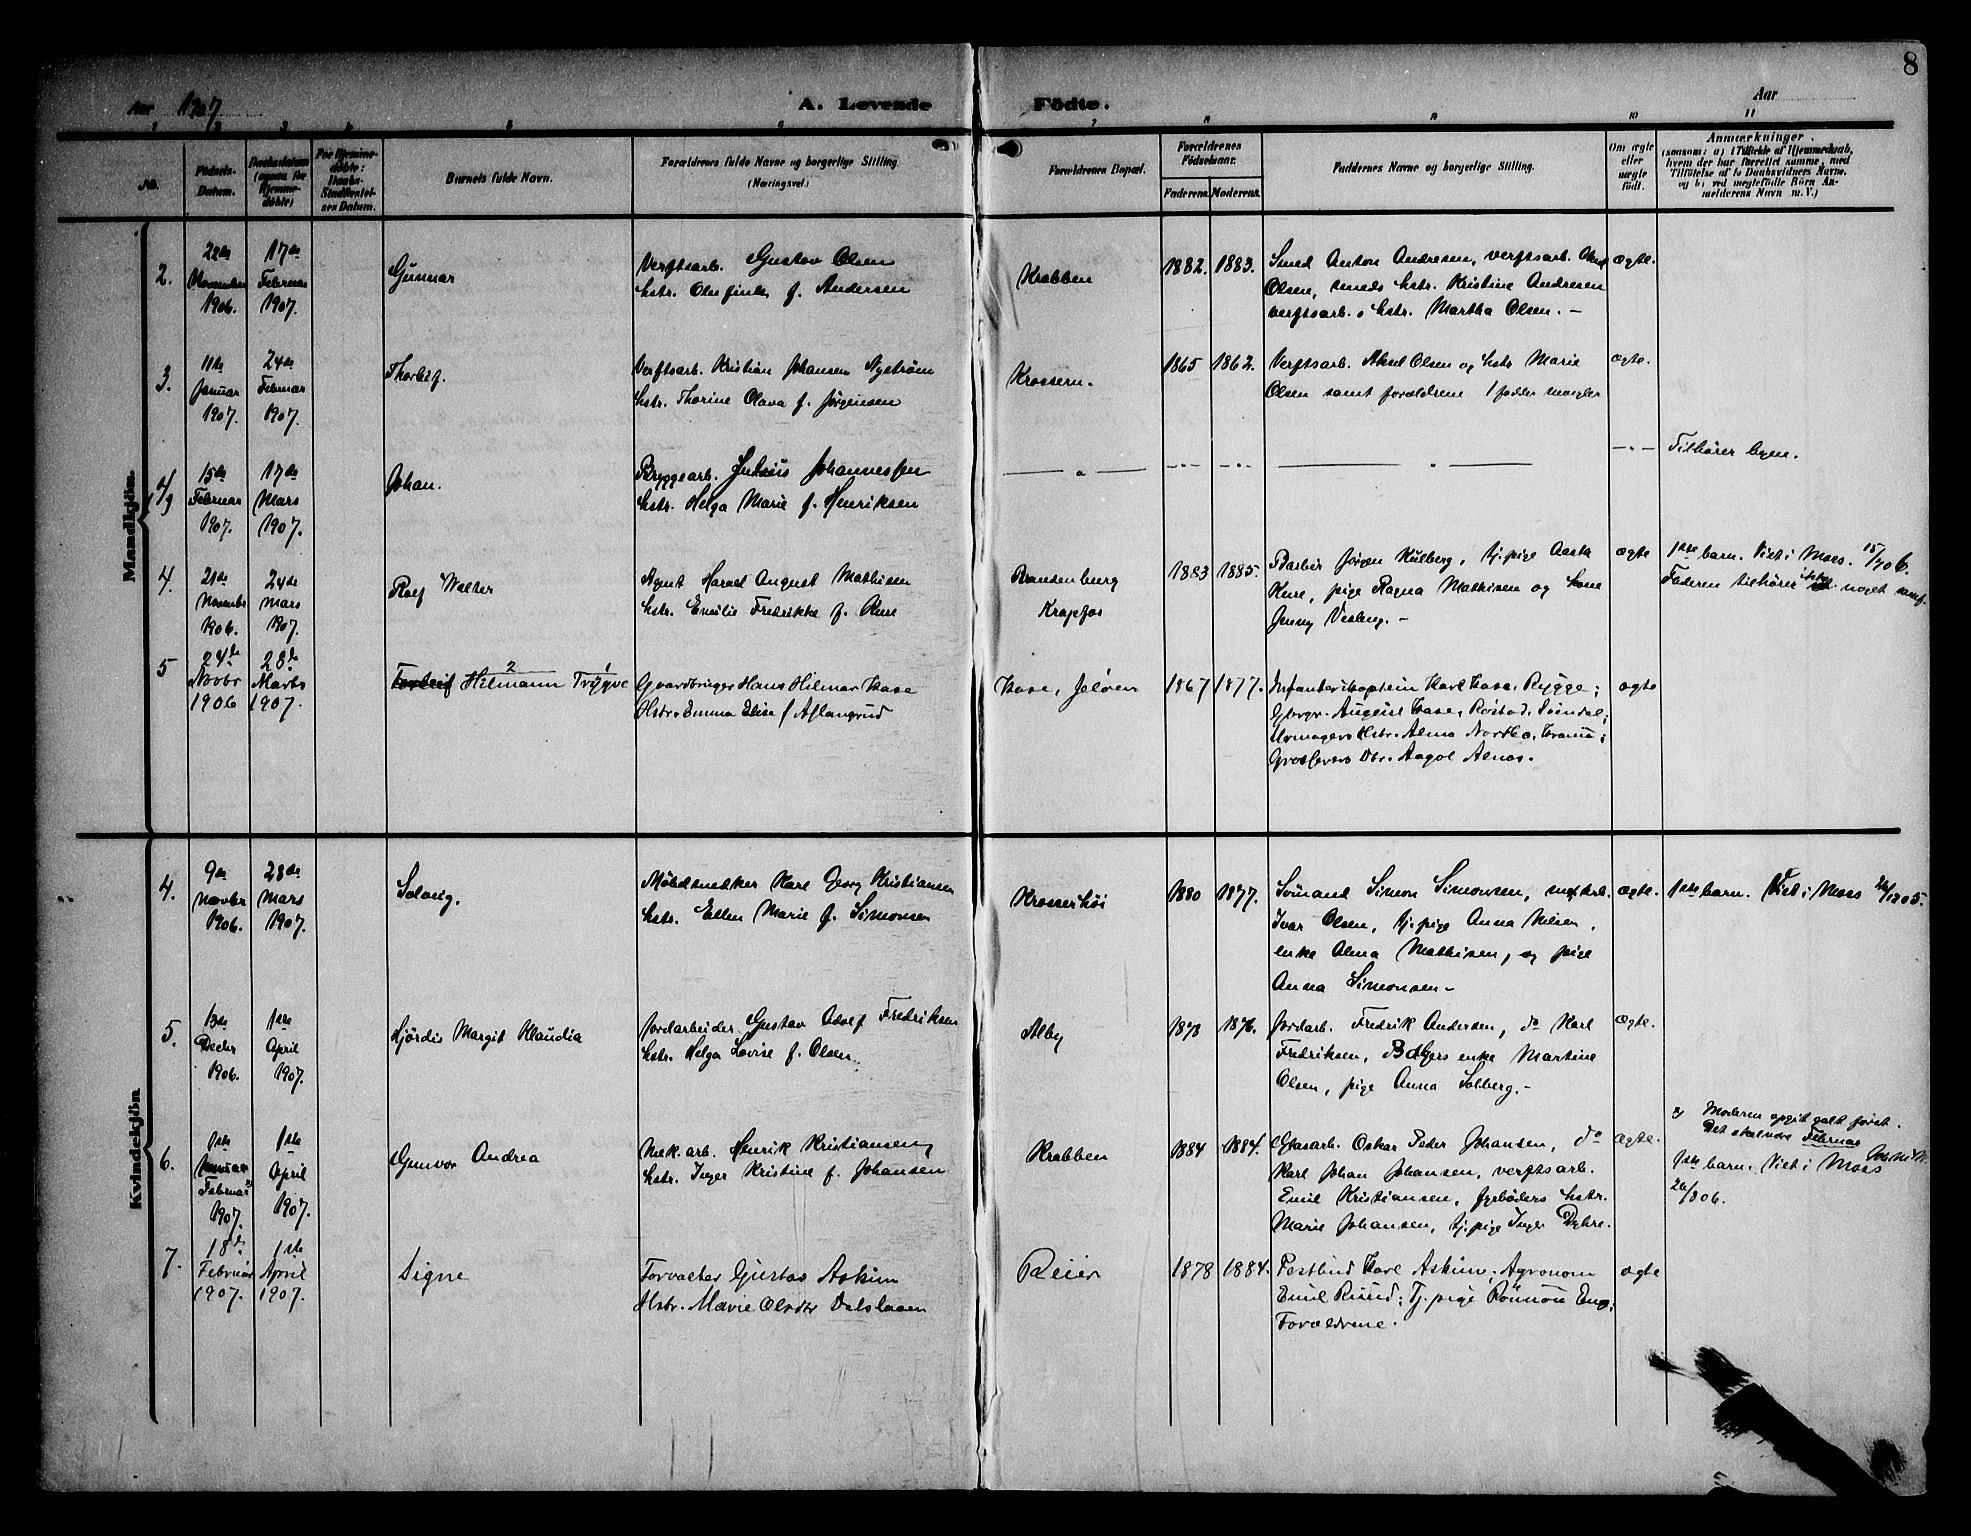 8
Aar 1907 A. Levende Födte. Aar
1 2 3 4 5 6 7 8 9 10 11
No.
Födsels-
Datum.
Daabsdatum
(ogsaa for
Hjemme-
döbte)
For Hjemme-
döbte:
Daabs-
Stadfæstel-
ses Datum.
Barnets fulde Navn.
Forældrenes fulde Navne og borgerlige Stilling
(Næringsvei.)
Forældrenes Bopæl.
Forældrenes
Födselsaar.
Faderens. Moderens.
Faddernes Navne og borgerlige Stilling.
Om ægte
eller
uægte
födt.
Anmærkninger.
(saasom: a) i Tilfælde af Hjemmedaab,
hvem der har forrettet samme, med
Tilföielse af to Daabsvidners Navne,
og b) ved uægtefödte Börn An-
melderens Navn m. V.)
Mandkjön.
2.
22de
November
1906.
17de
Februar
1907.
Gunnar
Verftsarb. Gustav Olsen
hstr. Olufine f. Andersen
Krabben
1882. 1883.
Smed Anton Andresen, verftsarb.
Olsen, smeds hstr. Kristine Andresen
verftsarb.s hstr. Martha Olsen. -
ægte.
3.
11te
Januar
1907.
24de
Februar
1907.
Thorleif.
Verftsarb. Kristian Johansen Nystrøm
hstr. Thorine Olava f. Jørgensen
Krossern.
1865 1862.
Verftsarb. Aksel Olsen og hstr Marie
Olsen samt forældrene 1 fadder mangler
ægte.
4/9
15de
Februar
1907.
17de
Mars
1907.
Johan.
Bryggearb. Julius Johannessen
hstr. Helga Marie f. Henriksen
— " —
-"- -"-
— " —
-"-
Tilhører byen.
4.
21de
Novembr
1906.
24de
Mars
1907.
Rolf Walter
Agent Harald August Mathisen
hstr. Emilie Fredrikke f. Kure
Brandenburg
Krapfos
1883 1885.
Barber Jørgen Kulberg, tj.pige Aasta
Kure, pige Ragna Mathisen og kone
Jenny Vesberg. -
ægte
1ste barn. Viet i Moss. 15/7 06.
Faderen tilhører ikke noget samf.
5
24de
Novbr
1906
28de
Marts
1907.
Torleif Hilmann Trygve
2 1
Gaardbruger Hans Hilmar Kase
Hstr. Emma Elise f Aflangrud
Kase, Jeløen
1867 1877.
Infanterikaptein Karl Kase, Rygge;
Gbrgr. August Kase, Røstad, Soindal;
Urmagers Hstr. Alma Nordbo, Krania;
Grosserers Dtr. Aagot Alnas.
ægte
Kvindekjön
4.
9de
Novbr
1906.
28de
Mars
1907.
Solveig.
Møbelsnedker Karl Georg Kristiansen
hstr. Ellen Marie f. Simonsen
Krosserhöi
1880 1877.
Sömand Simon Simonsen,
Ivar Olsen, tj.pige Anna Nilsen,
enke Alma Mathisen, og pige
Anna Simonsen -
ægte.
1ste barn. Viet i Moss 26/12 05.
5.
13de
Decbr
1906.
1ste
April
1907.
Hjördis Margit Klaudia
Jordarbeider Gustav Adolf Fredriksen
hstr. Helga Lovise f. Olsen
Alby
1878 1876.
Jordarb. Fredrik Andersen, do Karl
Fredriksen, Bdgers enke Martine
Olsen, pige Anna Solberg. -
ægte.
6.
1ste
Januar
Februar x)
1907.
1ste
April
1907.
Gunvor Andrea
Mek. arb. Henrik Kristiansen
hstr. Inger Kristine f. Johansen
Krabben
1884 1884.
Glasarb. Oskar Peder Johansen, do
Karl Johan Johansen, verftsarb.
Emil Kristiansen, fyrböders hstr.
Marie Johansen, tj.pige Inger Dybre.
ægte.
x) Moderen opgit galt først.
Det skal være Februar
1ste barn. Viet i Moss
26/8 06.
7.
18de
Februar
1907.
1ste
April
1907.
Signe
Forvalter Gustav Askim
Hstr. Marie Olsdtr Dalslaaen
Reier
1878 1884.
Postbud Karl Askim; Agronom
Emil Ruud; Tj. pige Rönnou Eng;
Forældrene.
ægte